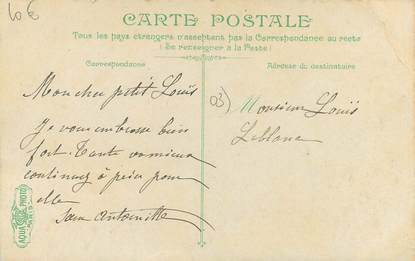 10 €
CARTE POSTALE
Tous les pays étrangers n'acceptent pas la Correspondance au recto
(Se renseigner à la Poste)
Correspondance
Adresse du destinataire
Mon cher petit Louis
Je vous embrasse bien
fort. Tante va mieux
continuez à prier pour
elle
Sœur Antoinette
03)
Monsieur Louis
Leblanc
AQUA PHOTO
PARIS